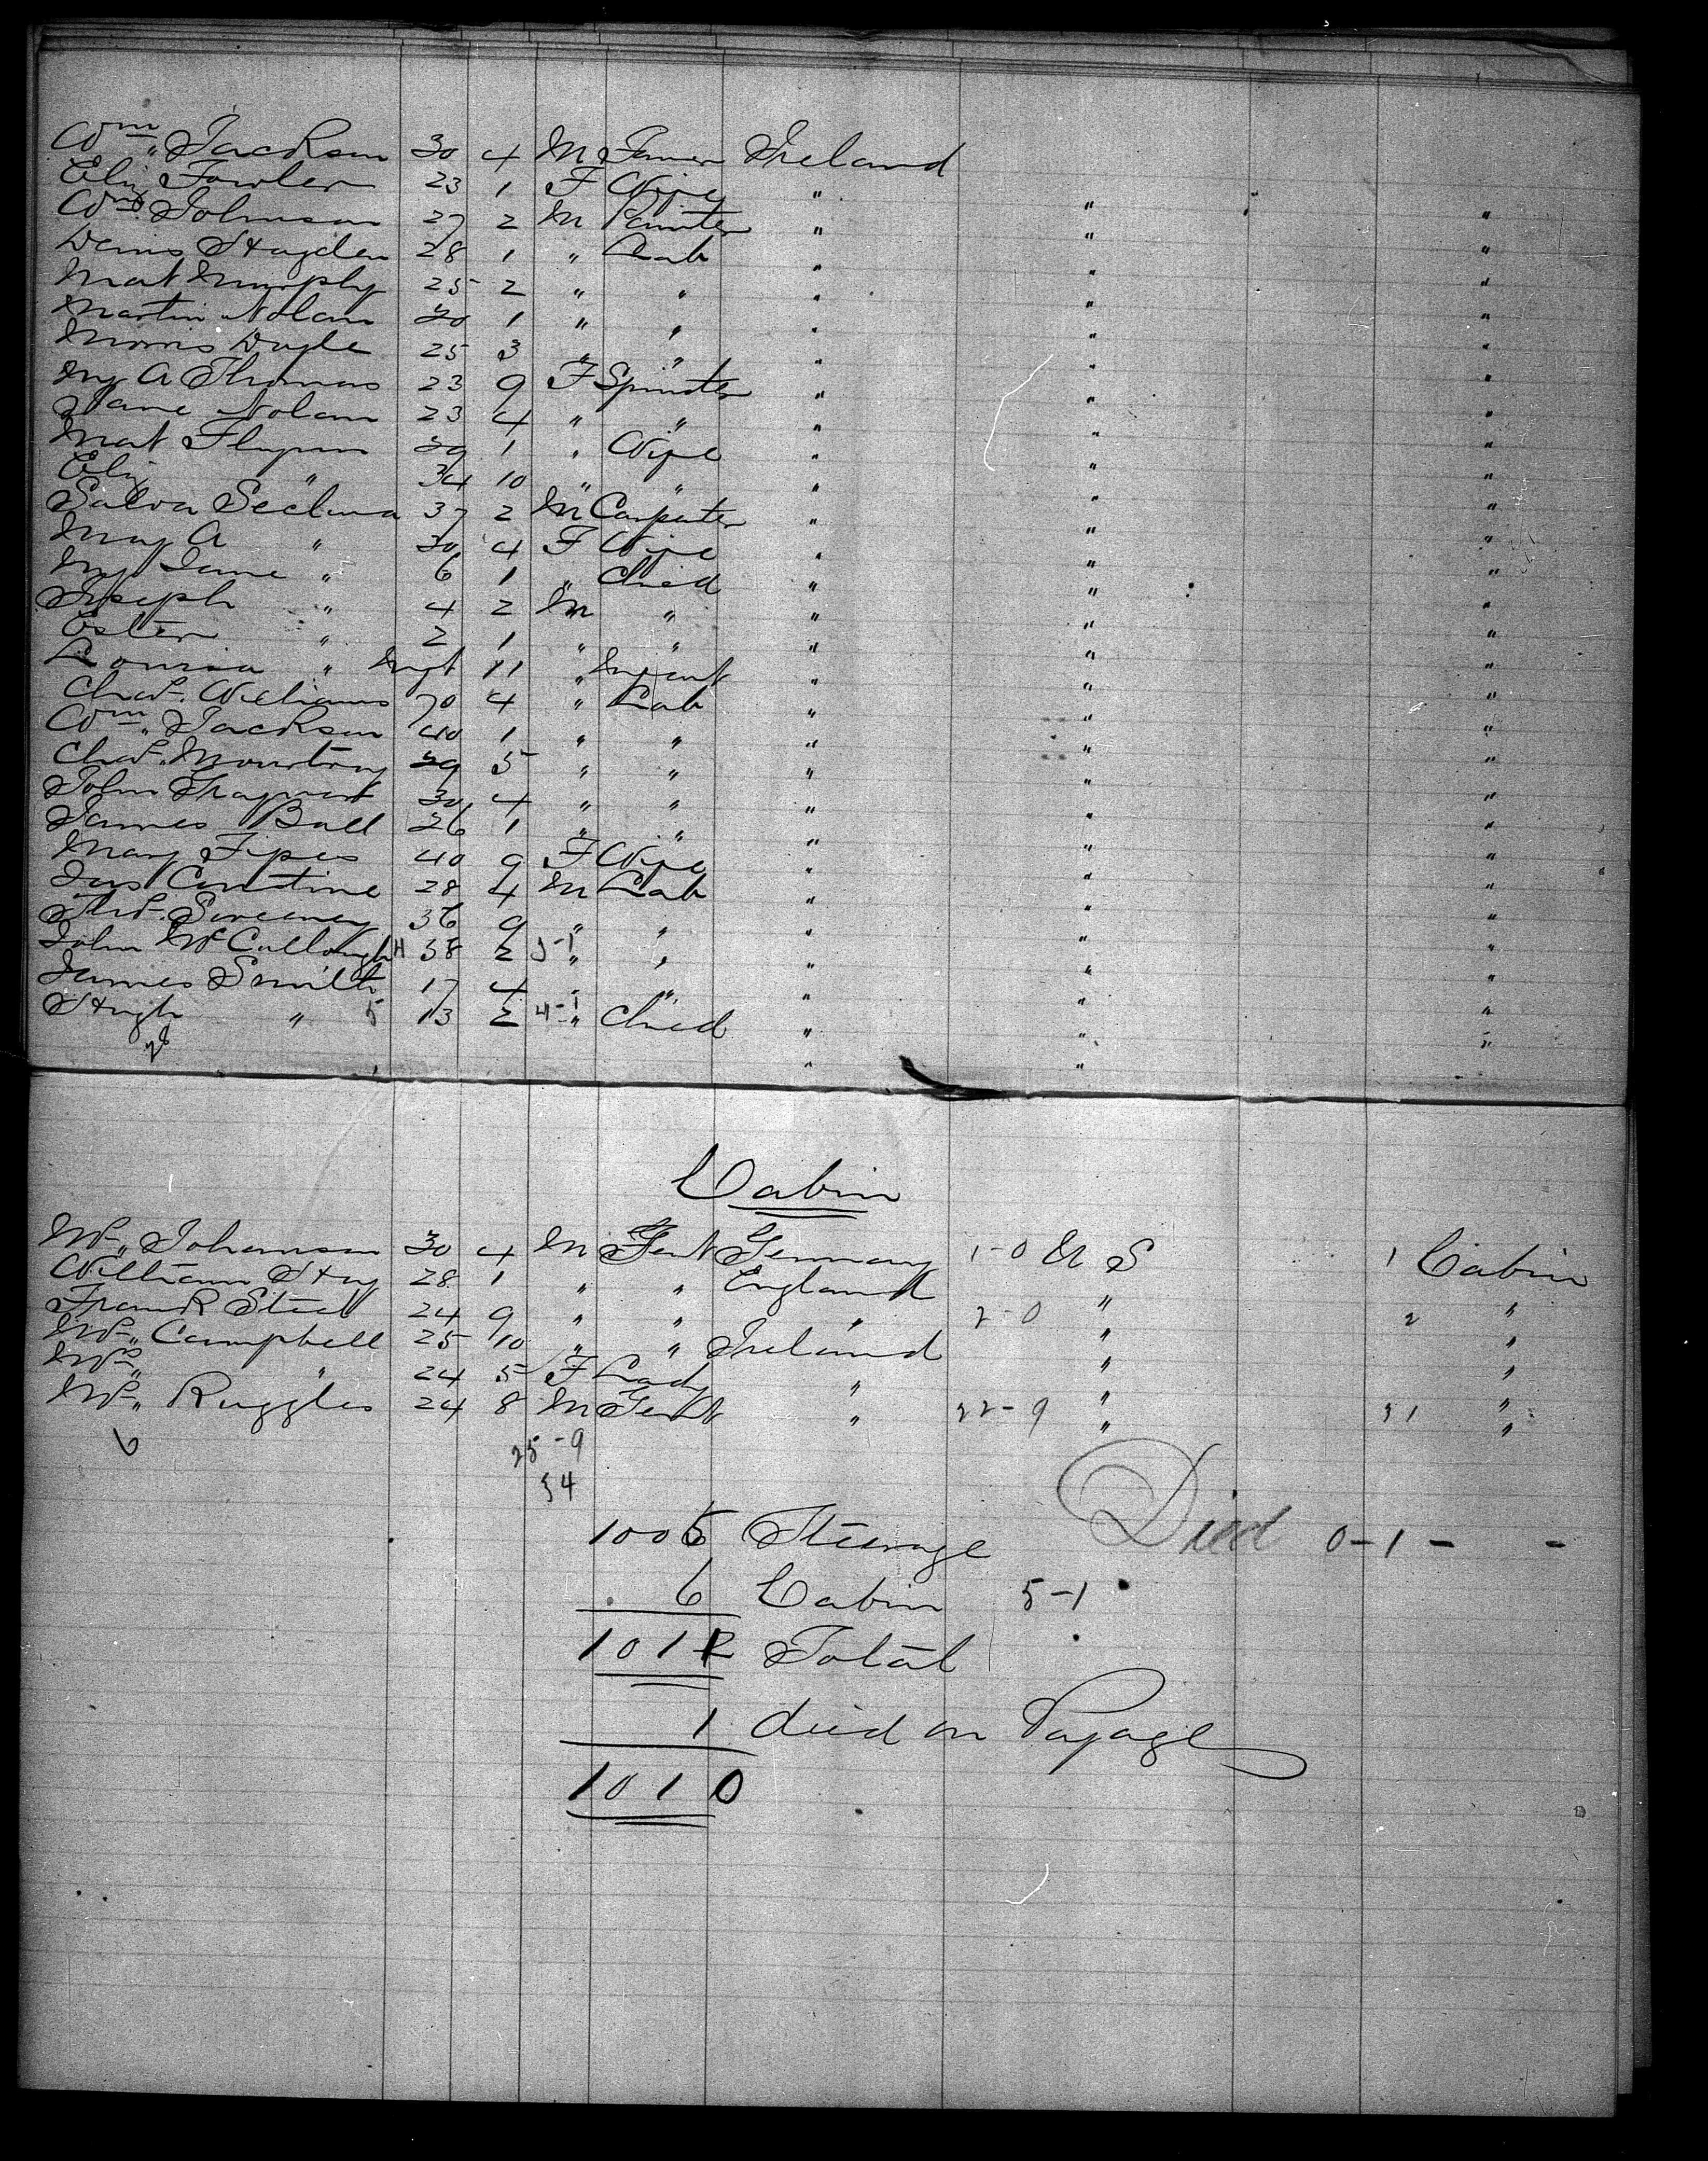 Wm Jackson 30 4 M Farmer Ireland
Eliz Fowler 23 1 F Wife " " "
Wm Johnson 27 2 M Painter " " "
Denis Hayden 28 1 " Lab " " "
Mat Murphy 25 2 " " " " "
Martin Nolan 30 1 " " " " "
Morris Doyle 25 3 " " " " "
My A Thomas 23 9 F Spinster " " "
Jane Nolan 23 4 " " " " "
Mat Flynn 29 1 " Wife " " "
Eliz " 34 10 " " " " "
Salva Secluna 37 2 M Carpenter " " "
Mary A " 30 4 F Wife " " "
My Jane " 6 1 " Child " " "
Joseph " 4 2 M " " " "
Ester " 2 1 " " " " "
Louisa " Inft 11 " Infant " " "
Chas. Williams 70 4 " Lab " " "
Wm Jackson 40 1 " " " " "
Chas. 29 5 " " " " "
John 30 4 " " " " "
James Ball 26 1 " " " " "
Mary 40 9 F Wife " " "
Jas 28 4 M Lab " " "
Sweeney 36 9 " " " " "
John McCullough 4 38 2 3-1 " " " " "
James Smith 17 4 " " " " "
Hugh " 5 13 2 4-1 " Child " " "
28 " "
Cabin
Mr Johannson 30 4 M Gent Germany 1-0 U S 1 Cabin
William Hay 28 1 " " England " "
Frank Steel 24 9 " " " 2-0 " 2 "
Mr Campbell 25 10 " " Ireland " "
Mrs " 24 5 F Lady " " "
Mr Ruggles 24 8 M Gent " 22-9 " 31 "
6 25-9
34
1005 Steerage Died 0-1 - -
6 Cabin 5-1
1011 Total
1 died on Pasage
1010